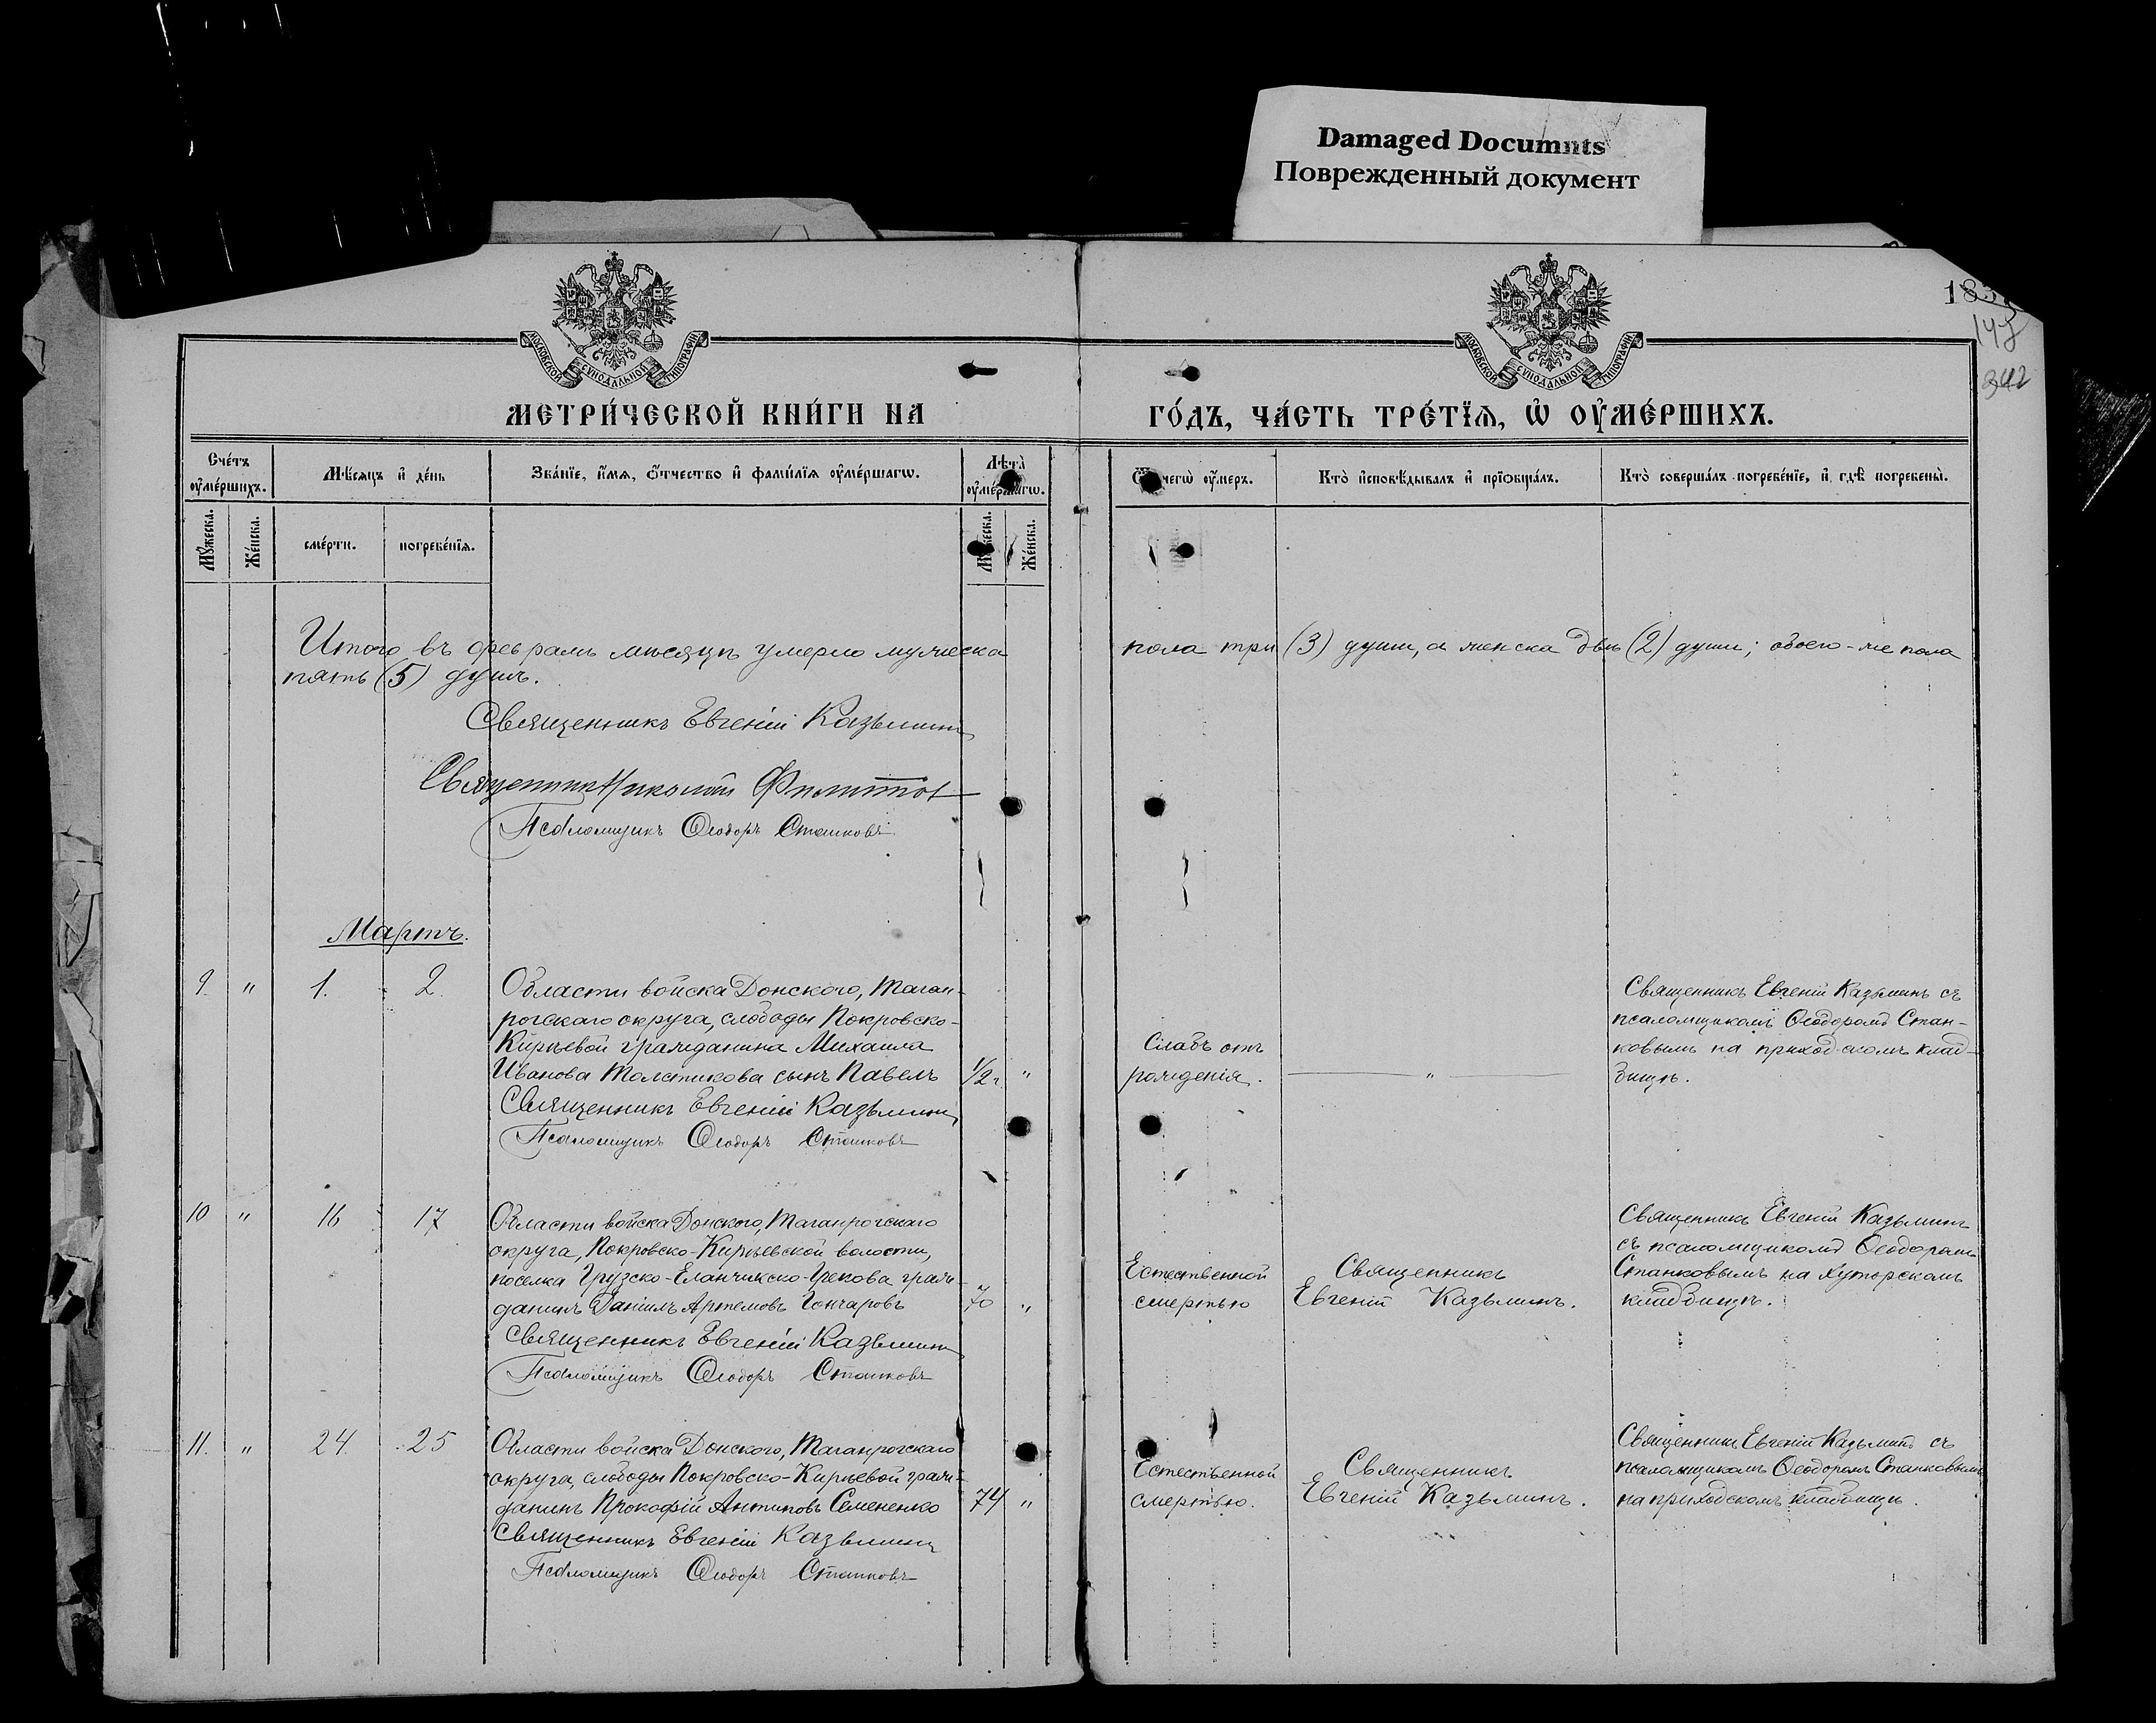 Damaged Documnts
Поврежденный документ
МОСКОВСКОЙ СѴНОДАЛЬНОЙ ТИПОГРАФІИ
МОСКОВСКОЙ СѴНОДАЛЬНОЙ ТИПОГРАФІИ
183
147
342
МЕТРИ́ЧЕСКОЙ КНИ́ГИ НА
ГО́ДЪ, ЧА́СТЬ ТРЕ́ТЇѦ, Ѡ҆ ОУ҆МЕ́РШИХЪ.
Сче́тъ оу҆ме́ршихъ.
Мѣ́сяцъ и҆ де́нь
Зва́нїе, и҆́мя, ѻ҆́тчество и҆ фами́лїя оу҆ме́ршагѡ.
Лѣта̀ оу҆ме́ршагѡ.
Ѿ чегѡ̀ оу҆́меръ.
Кто̀ и҆сповѣ́дывалъ и҆ прїѻбща́лъ.
Кто̀ соверша́лъ погребе́нїе, и҆ гдѣ̀ погребены̀.
Мꙋ́жеска.
Же́нска.
сме́рти.
погребе́нїя.
Мꙋ́жеска.
Же́нска.
Итого въ февралѣ мѣсяцѣ умерло мужеска пола три (3) души, а женска двѣ (2) души; обоего-же пола
пять (5) душъ.
Священникъ Евгеній Казьминъ
Священник Николай Филиппов
Псаломщикъ Ѳеодоръ Станковъ
Мартъ.
9. " 1. 2.
Области войска Донского, Таган-
рогскаго округа, слободы Покровско-
Кирѣевой гражданина Михаила
Иванова Толстикова сынъ Павелъ
1/2 г. "
Священникъ Евгеній Казьминъ
Псаломщикъ Ѳеодоръ Станковъ
Слабъ отъ
рожденія.
"
Священникъ Евгеній Казьминъ съ
псаломщикомъ Ѳеодоромъ Стан-
ковымъ на приходскомъ клад-
бищѣ.
10 " 16 17
Области войска Донского, Таганрогскаго
округа, Покровско-Кирѣевской волости,
поселка Грузско-Еланчикско-Грекова граж-
данинъ Даніилъ Артемовъ Гончаровъ
70 "
Священникъ Евгеній Казьминъ
Псаломщикъ Ѳеодоръ Станковъ
Естественной
смертью
Священникъ
Евгеній Казьминъ.
Священникъ Евгеній Казьминъ
съ псаломщикомъ Ѳеодоромъ
Станковымъ на хуторскомъ
кладбищѣ.
11. " 24. 25
Области войска Донского, Таганрогскаго
округа, слободы Покровско-Кирѣевой граж-
данинъ Прокофій Антиповъ Семененко
74 "
Священникъ Евгеній Казьминъ
Псаломщикъ Ѳеодоръ Станковъ
Естественной
смертью.
Священникъ
Евгеній Казьминъ.
Священникъ Евгеній Казьминъ съ
псаломщикомъ Ѳеодоромъ Станковымъ
на приходскомъ кладбищѣ.